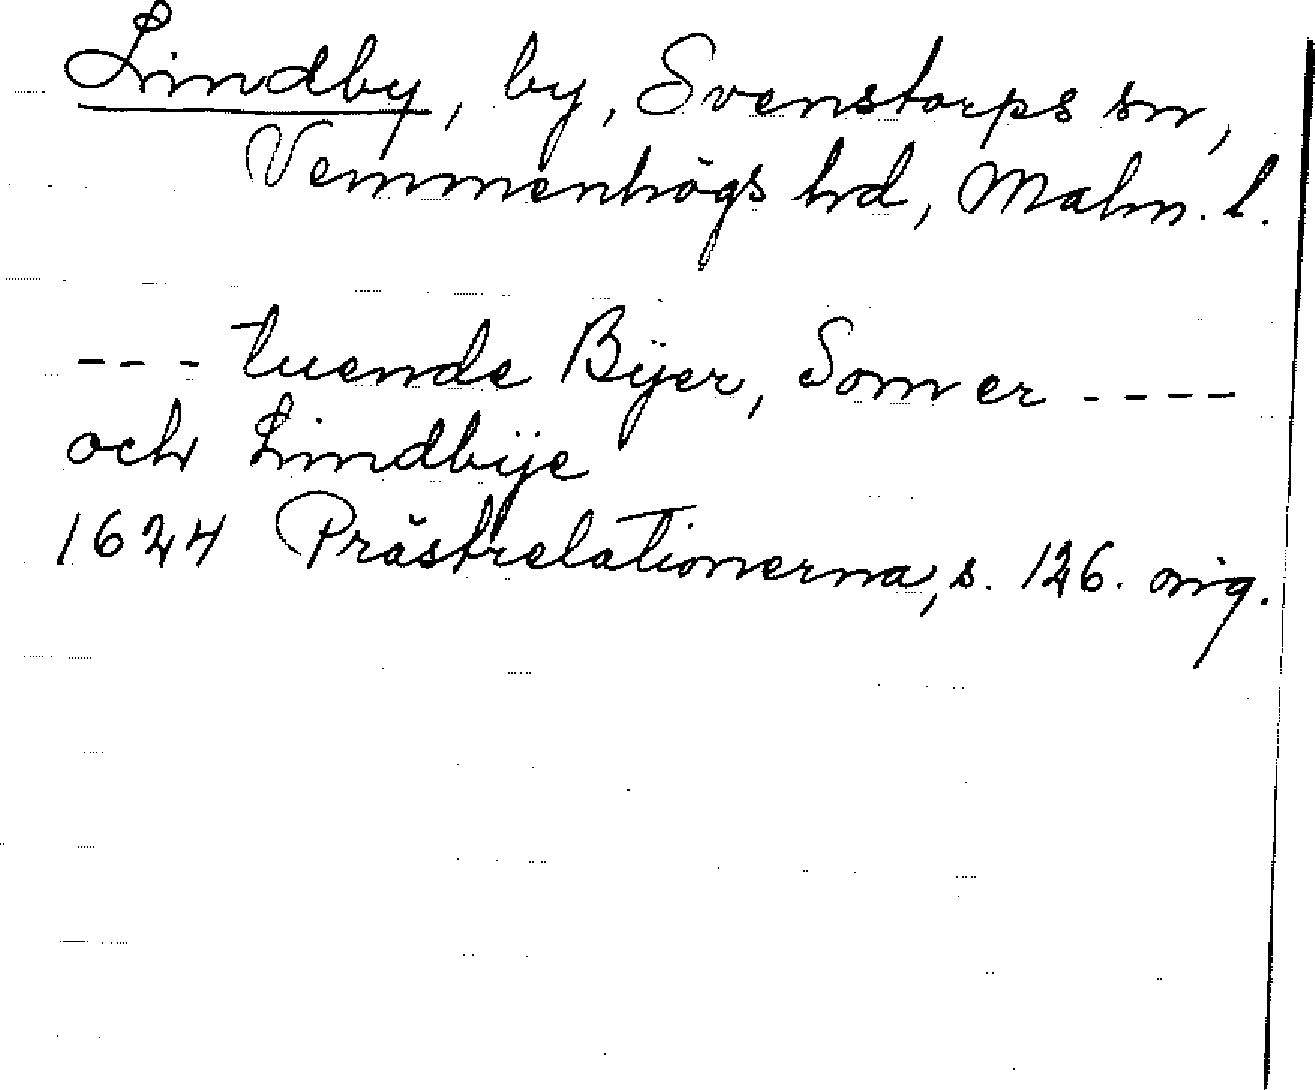 Lindby, by, Svenstorps sn,
Vemmenhögs hd, Malm. l.
--- tuende Bÿer, Som er ----
och Lindbÿe
1624 Prästrelationerna, s. 126. orig.